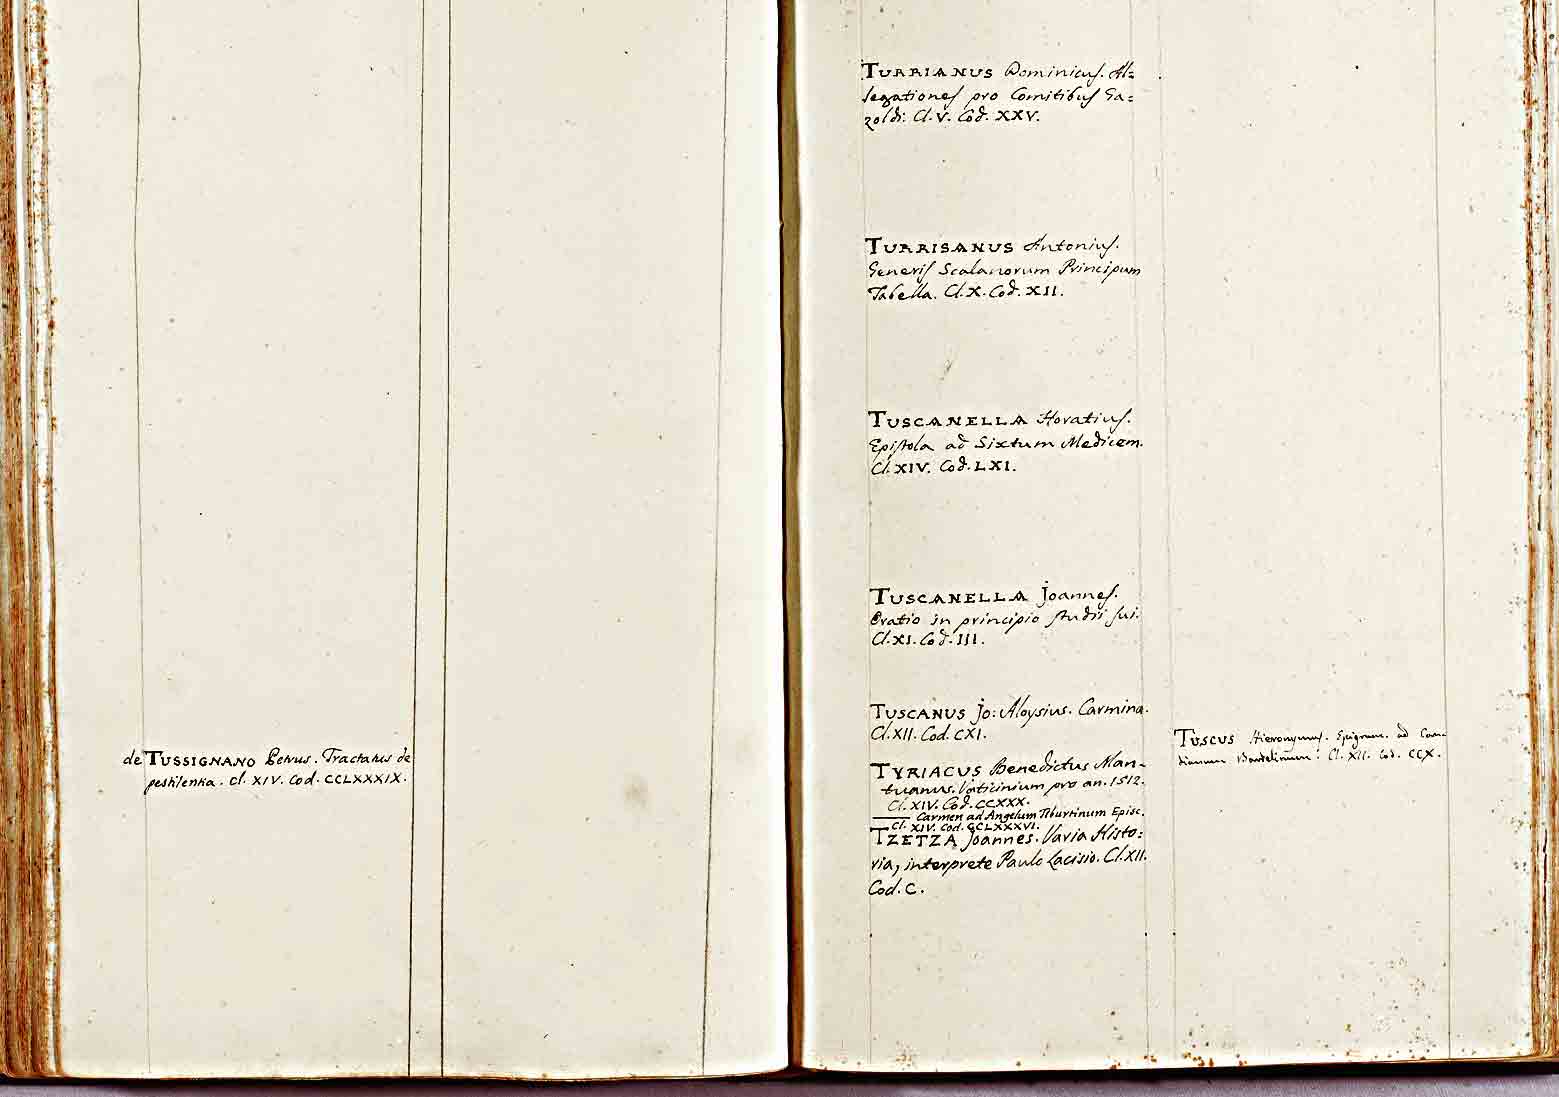 de TUSSIGNANO Petrus. Tractatus de
pestilentia. Cl. XIV. Cod. CCLXXXIX.
TURRIANUS Dominicus. Al=
legationes pro Comitibus Ga=
zoldi: Cl. V. Cod. XXV.
TURRISANUS Antonius.
Generis Scalanorum Principum
Tabella. Cl. X. Cod. XII.
TUSCANELLA Horatius.
Epistola ad Sixtum Medicem.
Cl. XIV. Cod. LXI.
TUSCANELLA Joannes.
Oratio in principio studii sui.
Cl. XI. Cod. III.
TUSCANUS Jo: Aloysius. Carmina.
Cl. XII. Cod. CXI.
TYRIACUS Benedictus Man-
tuanus. Vaticinium pro an. 1512.
Cl. XIV. Cod. CCXXX.
Carmen ad Angelum Tiburtinum Episc.
Cl. XIV. Cod. CCLXXXVI.
TZETZA Joannes. Varia Histo:
ria, interprete Paulo Lacisio. Cl. XII.
Cod. C.
TUSCUS Hieronymus. Epigram. ad
Cl. XII. Cod. CCX.